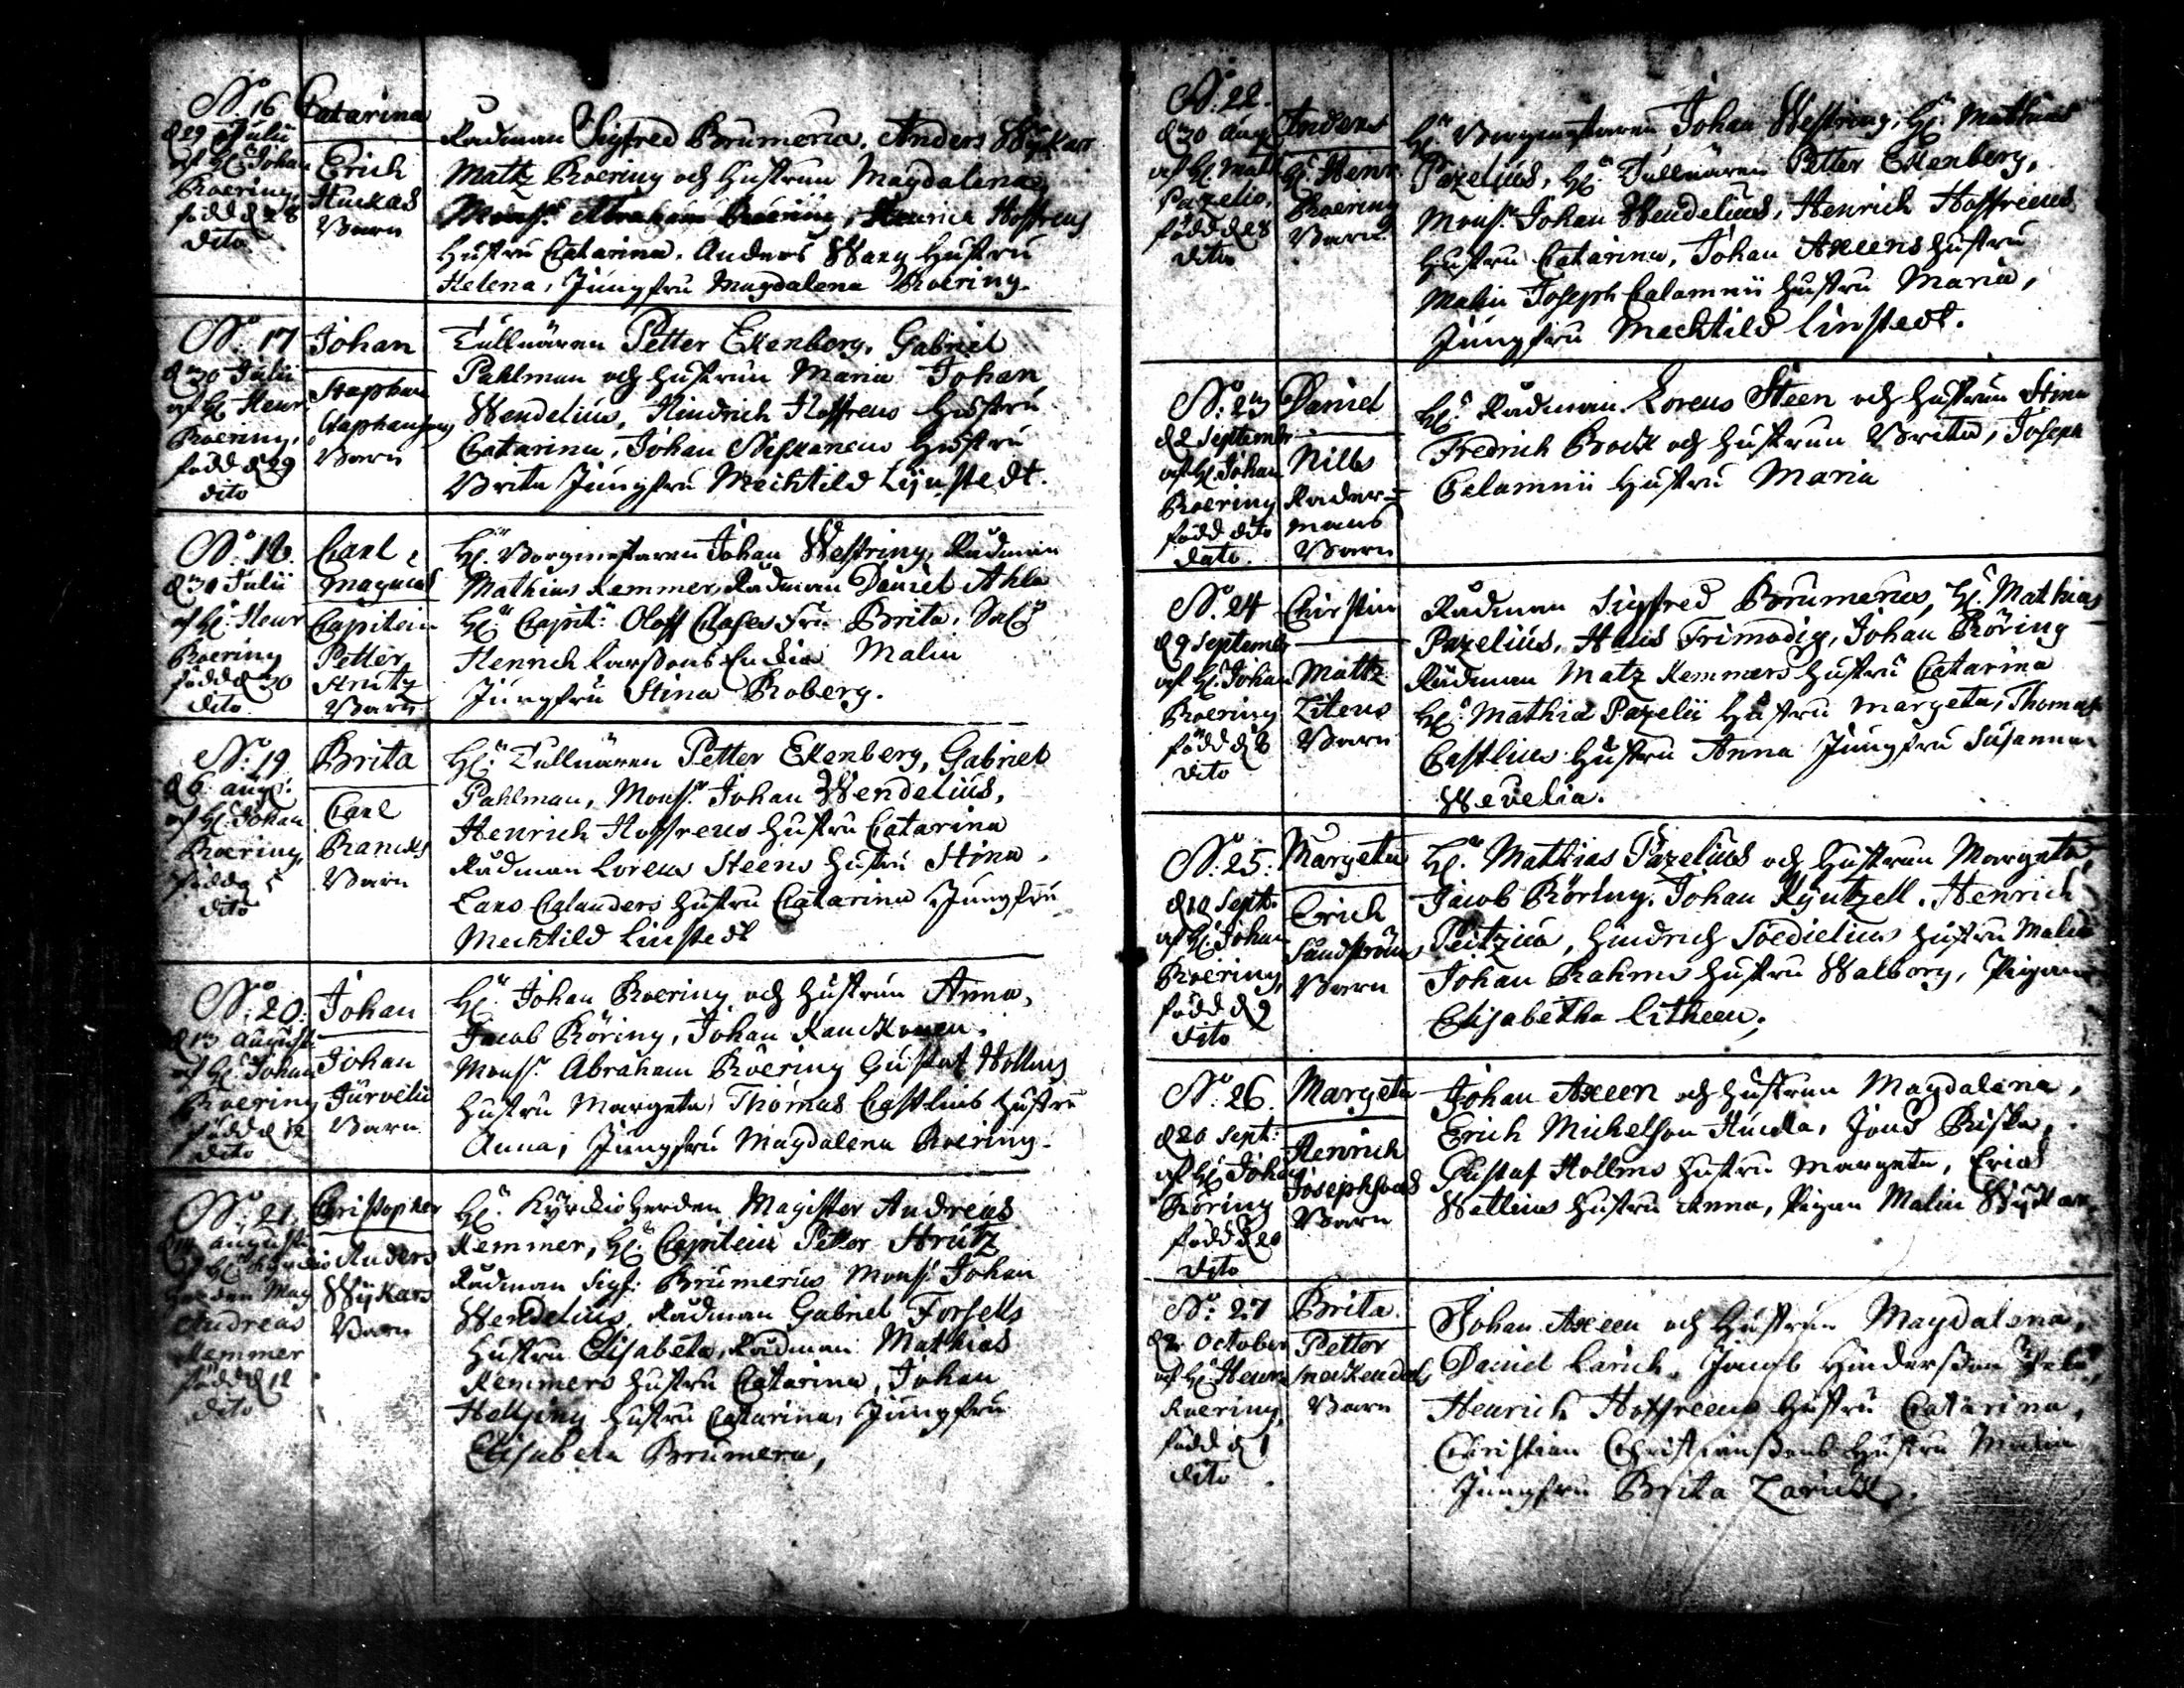 No. 16
d 29 Julii
af H. Johan
Roering,
född d 28
dito
Catarina
Erich
Huckas
Barn
Rådman Sigfred Brumerus, Anders Wykar
Mattz Roering och Hustrun Magdalena,
Monsr. Abraham Roering, Henrich Hoffrens
Hustru Catarina. Anders Wargs Hustru
Helena, Jungfru Magdalena Roering.
No. 17
d 30 Julii
af H. Henr.
Roering,
född d 29
dito
Johan
Staphan
Staphansons
Barn
Tullnären Petter Ekenberg, Gabriel
Pahlman och Hustrun Maria Johan
Wendelius, Hindrich Hoffrens Hustru
Catarina, Johan Neskanens Hustru
Brita Jungfru Mechtild Lijnstedt.
No. 18.
d 30 Julii
af H. Henr
Roering
född d 30
dito
Carl
Magnus
Capitein
Petter
Strutz
Barn
Hr. Borgmestaren Johan Westring, Rådman
Mathias Kemmer, Rådman Daniel Ahla
Hr. Capit. Oloff Clases Fru Brita, Sal.
Henrich Larssons Enckia Malin
Jungfru Stina Roberg.
No. 19
d 6 aug:
af H. Johan
Roering,
född 5
dito
Brita
Carl
Rancks
Barn
Hr. Tullnären Petter Ekenberg, Gabriel
Pahlman, Monsr. Johan Wendelius,
Henrich Hoffrens Hustru Catarina
Rådman Lorens Steens Hustru Stina,
Lars Calanders Hustru Catarina Jungfru
Mechtild Linstedt
No. 20.
d 13 august.
af H. Johan
Roering
född d 12
dito
Johan
Johan
Jurvelii
Barn
Hr. Johan Roering och Hustrun Anna,
Jacob Röring, Johan Ranckonen,
Monsr. Abraham Roering Gustaf Hollms
Hustru Margeta, Thomas Castlins Hustru
Anna, Jungfru Magdalena Roering.
No. 21.
august.
af H. Kyrckio
herden Mag
Andreas
Kemmer
född d 12
dito
Christopher
Anders
Wykars
Barn
Hr. Kyrckioherden Magister Andreas
Kemmer, Hr. Capitein Petter Strutz
Rådman Sigf: Brumerus Monsr. Johan
Wendelius, Rådman Gabriel Forsells
Hustru Elisabeta, Rådman Mathias
Kemmers Hustru Catarina, Johan
Hellsing Hustru Catarina, Jungfru
Elisabeta Brumera,
No. 22.
d 30 aug
af H. Math
Pazelio,
född d 28
dito
Anders
H. Henr.
Roering
Barn
Hr. Borgmestaren Johan Westring, Hr. Mathias
Pazelius, Hr. Tullnären Petter Ekenberg,
Monsr. Johan Wendelius, Henrich Hoffreens
Hustru Catarina, Johan Axeens Hustru
Malin Joseph Calamnii Hustru Maria,
Jungfru Mechtild Linstedt.
No. 23
d 2 Septembr
af H. Johan
Roering
född dito
dato.
Daniel
Nills
Rader-
mans
Barn
Hr. Rådman Lorens Steen och Hustrun Stina
Fredrich Bock och Hustrun Brita, Joseph
Calamnii Hustru Maria
No. 24
d 9 Septembr
af H. Johan
Roering
född d 8
dito
Chirstin
Mattz
Litens
Barn
Rådman Sigfred Brumerus, Hr. Mathias
Pazelius, Hans Frimodig, Johan Röring
Rådman Matz Kemmers Hustru Catarina
Hr. Mathiæ Pazelii Hustru Margeta, Thomas
Castlins Hustru Anna Jungfru Susanna
Wevelia.
No. 25.
d 10 Sept.
af H. Johan
Roering,
född d 9
dito
Margeta
Erich
Sundströms
Barn
Hr. Mathias Pazelius och Hustrun Margeta,
Jacob Röring, Johan Kyntzell, Henrich
Peitzius, Hindrich Soedielius Hustru Malin
Johan Rahms Hustru Walborg, Pigan
Elisabetha Litheen,
No. 26.
d 20 Sept:
af H. Johan
Röring
född d 20
dito
Margeta
Henrich
Josephsons
Barn
Johan Axeen och Hustrun Magdalena,
Erich Michelson Hucka, Jons Riska,
Gustaf Hollms Hustru Margeta, Erics
Wallius Hustru Anna, Pigan Malin Wykar
No. 27
d 2 October
af H. Henr
Roering,
född d 1
dito
Brita.
Petter
Barn
Johan Axeen och Hustrun Magdalena,
Daniel Larick, Jacob Hindersson
Henrich Hoffreens Hustru Catarina,
Christian Christiansons Hustru Malin
Jungfru Brita Larick.